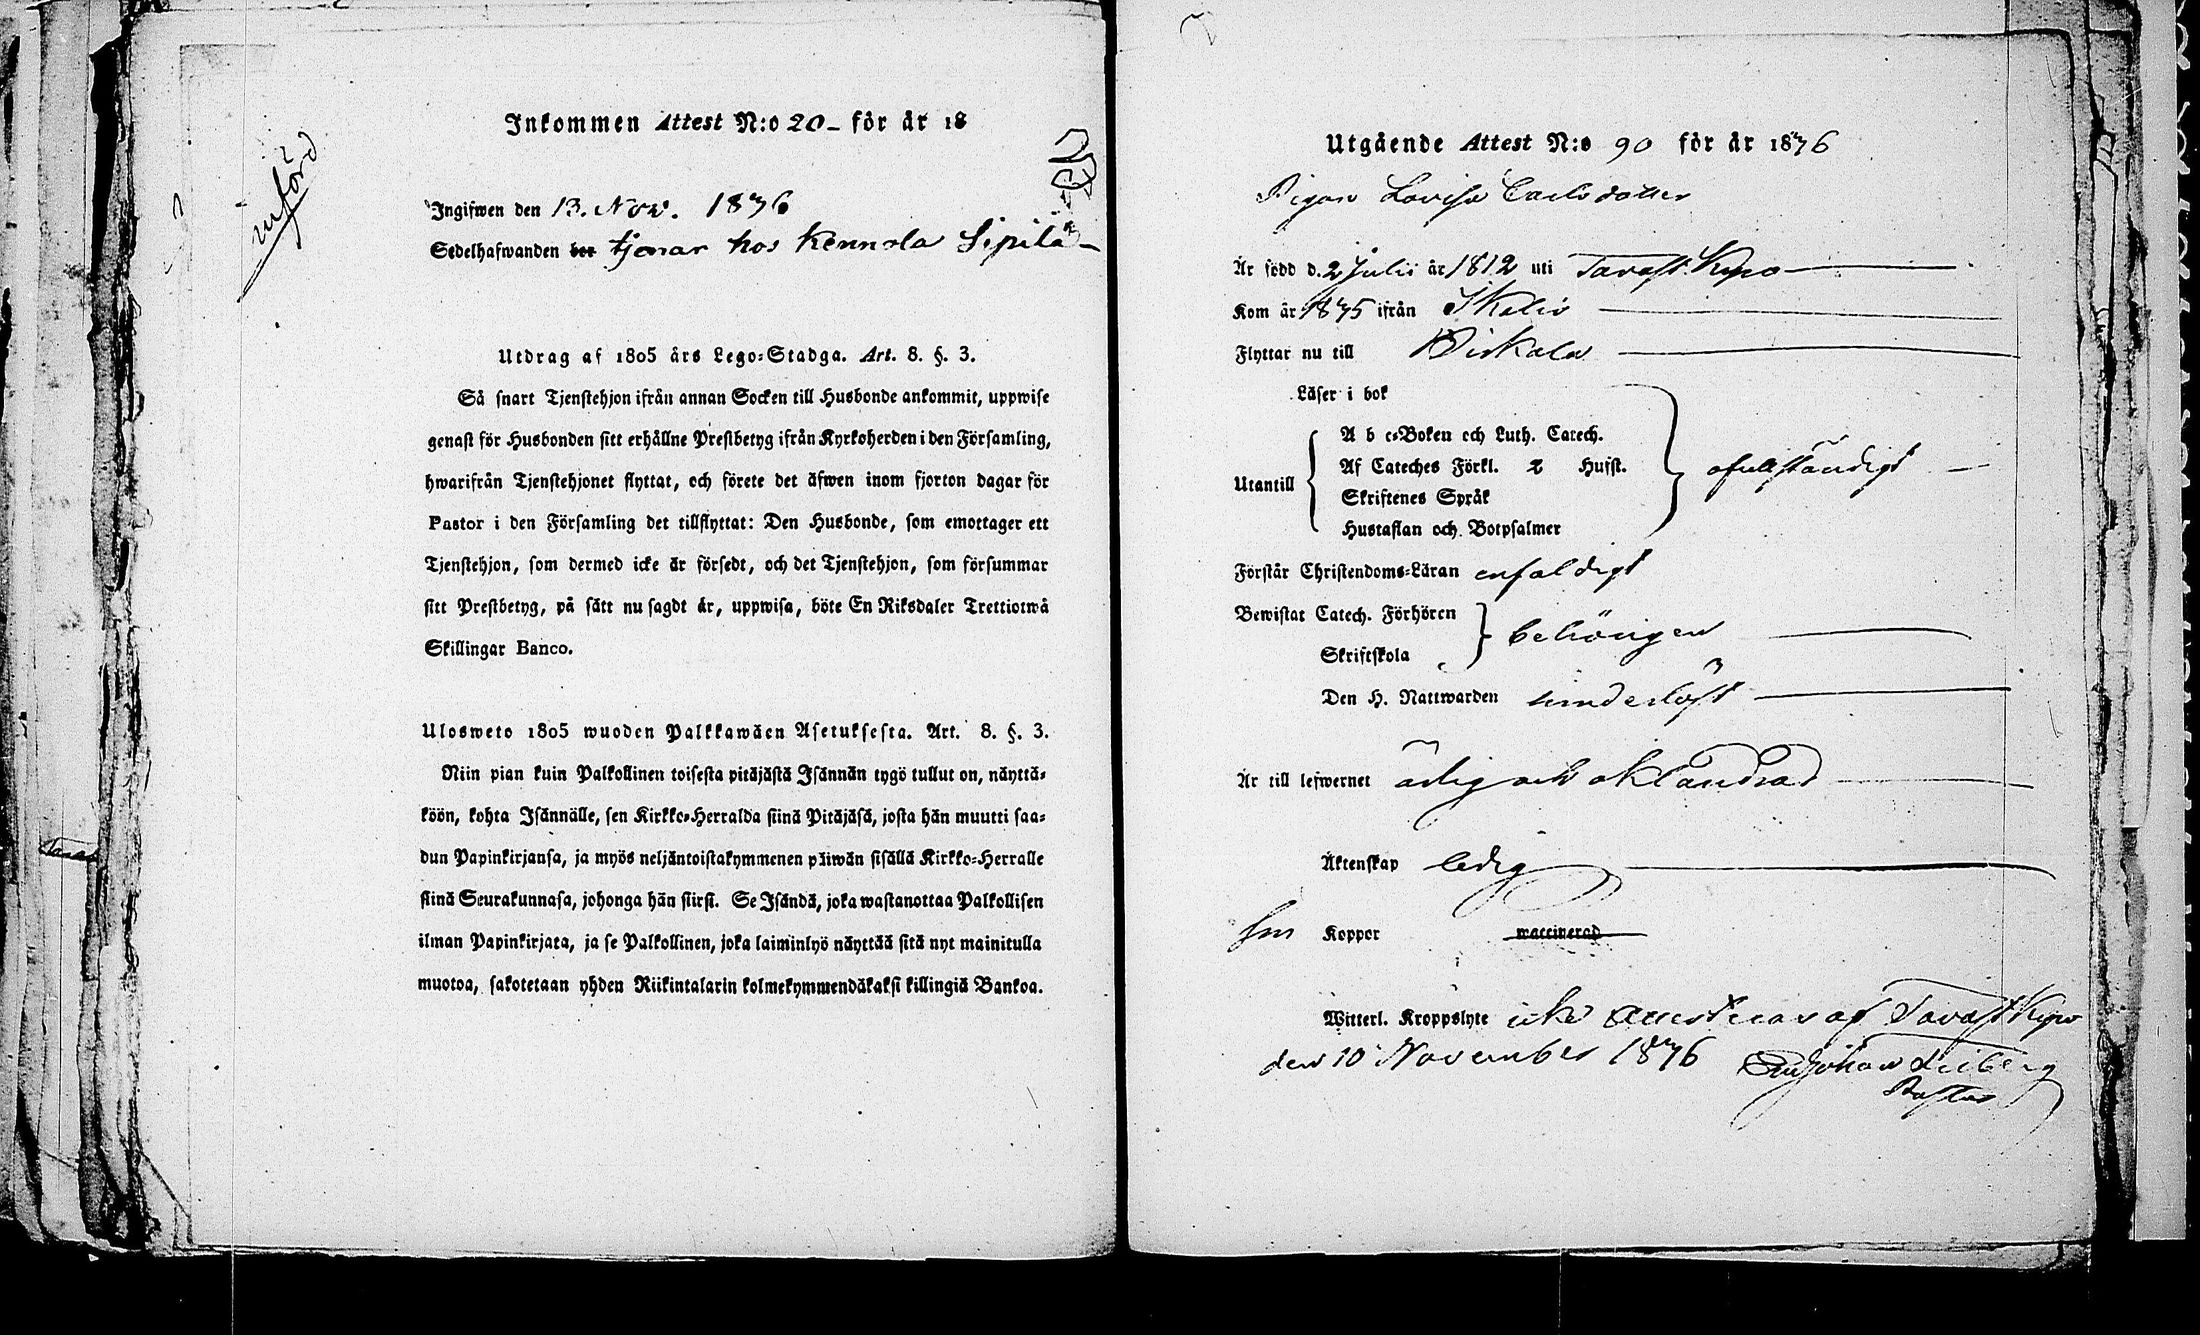 införd
Inkommen Attest N:o 20 – för år 18
Ingifwen den 13. Nov. 1876
Sedelhafwanden bor tjenar hos Kennola Sipilä –
Utdrag af 1805 års Lego=Stadga. Art. 8. §. 3.
Så snart Tjenstehjon ifrån annan Socken till Husbonde ankommit, uppwise
genast för Husbonden sitt erhållne Prestbetyg ifrån Kyrkoherden i den Församling,
hwarifrån Tjenstehjonet flyttat, och förete det äfwen inom fjorton dagar för
Pastor i den Församling det tillflyttat: Den Husbonde, som emottager ett
Tjenstehjon, som dermed icke är försedt, och det Tjenstehjon, som försummar
sitt Prestbetyg, på sätt nu sagdt är, uppwisa, böte En Riksdaler Trettiotwå
Skillingar Banco.
Ulosweto 1805 wuoden Palkkawäen Asetuksesta. Art. 8. §. 3.
Niin pian kuin Palkollinen toisesta pitäjästä Isännän tygö tullut on, näyttä=
köön, kohta Isännälle, sen Kirkko=Herralda siinä Pitäjäsä, josta hän muutti saa=
dun Papinkirjansa, ja myös neljäntoistakymmenen päiwän sisällä Kirkko=Herralle
siinä Seurakunnasa, johonga hän siirsi. Se Isändä, joka wastanottaa Palkollisen
ilman Papinkirjata, ja se Palkollinen, joka laiminlyö näyttää sitä nyt mainitulla
muotoa, sakotetaan yhden Riikintalarin kolmekymmendäkaksi killingiä Bankoa.
Utgående Attest N:o 90 för år 1876
Pigan Lovisa Carlsdotter
Är född d. 2 Julii år 1812 uti Tavast Kyro
Kom år 1875 ifrån Ikalis
Flyttar nu till Birkala
Läser i bok
Utantill
A b c=Boken och Luth. Catech.
Af Cateches Förkl. 2 Hufst.
Skriftenes Språk
Hustaflan och Botpsalmer
ofullständigt
Förstår Christendoms=Läran enfaldigt
Bewistat Catech. Förhören
Skriftskola
behörigen
Den H. Nattwarden
Är till lefwernet ärlig och oklandrad
Äktenskap ledig
Koppor waccinerad
Witterl. Kroppslyte icke attesteras af Tavast Kyro
den 10 November 1876 Johan
Pastor